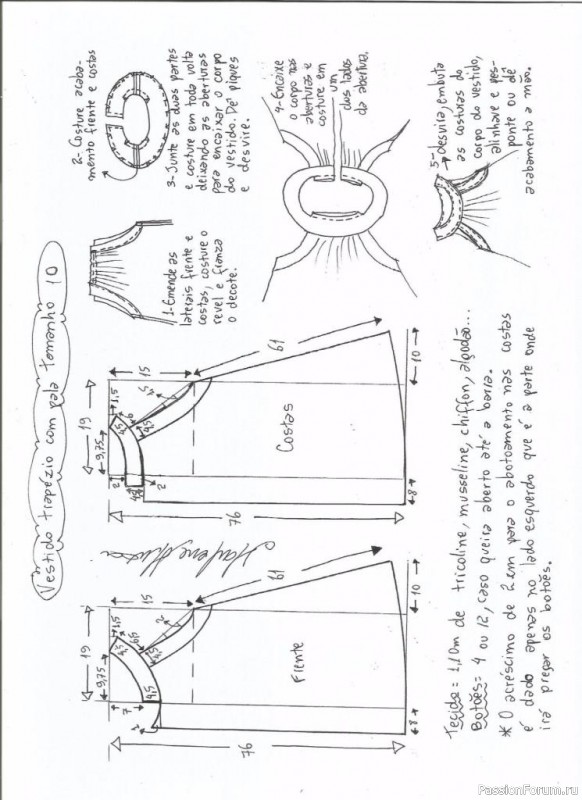 Vestido trapézio com pala tamanho 10
1-Emende as
laterais frente e
costas, costure o
revel e franza
o decote.
2- Costure acaba-
mento frente e costas
3- Junte as duas partes
e costure em toda volta
deixando as aberturas
para encaixar o corpo
do vestido. Dê piques
e desvire.
4-Encaixe
o corpo nas
aberturas e
costure em
um
dos lados
da abertura.
5-desvira, embuta
as costuras do
corpo do vestido,
alinhave e pes-
ponte ou dê
acabamento a mão.
19
9,75
1,5
15
7
4,5
4,5
2
2
19
76
Frente
8
10
19
9,75
1,5
15
2
6
4,5
4,5
4,5
2
19
76
Costas
8
10
Marlene Mukai
Tecido= 1,10m de tricoline, musseline, chiffon, algodão...
Botões= 4 ou 12, caso queira aberto até a barra.
* O acréscimo de 2cm para o abotoamento nas costas
é dado apenas no lado esquerdo que é a parte onde
irá pregar os botões.
PassionForum.ru